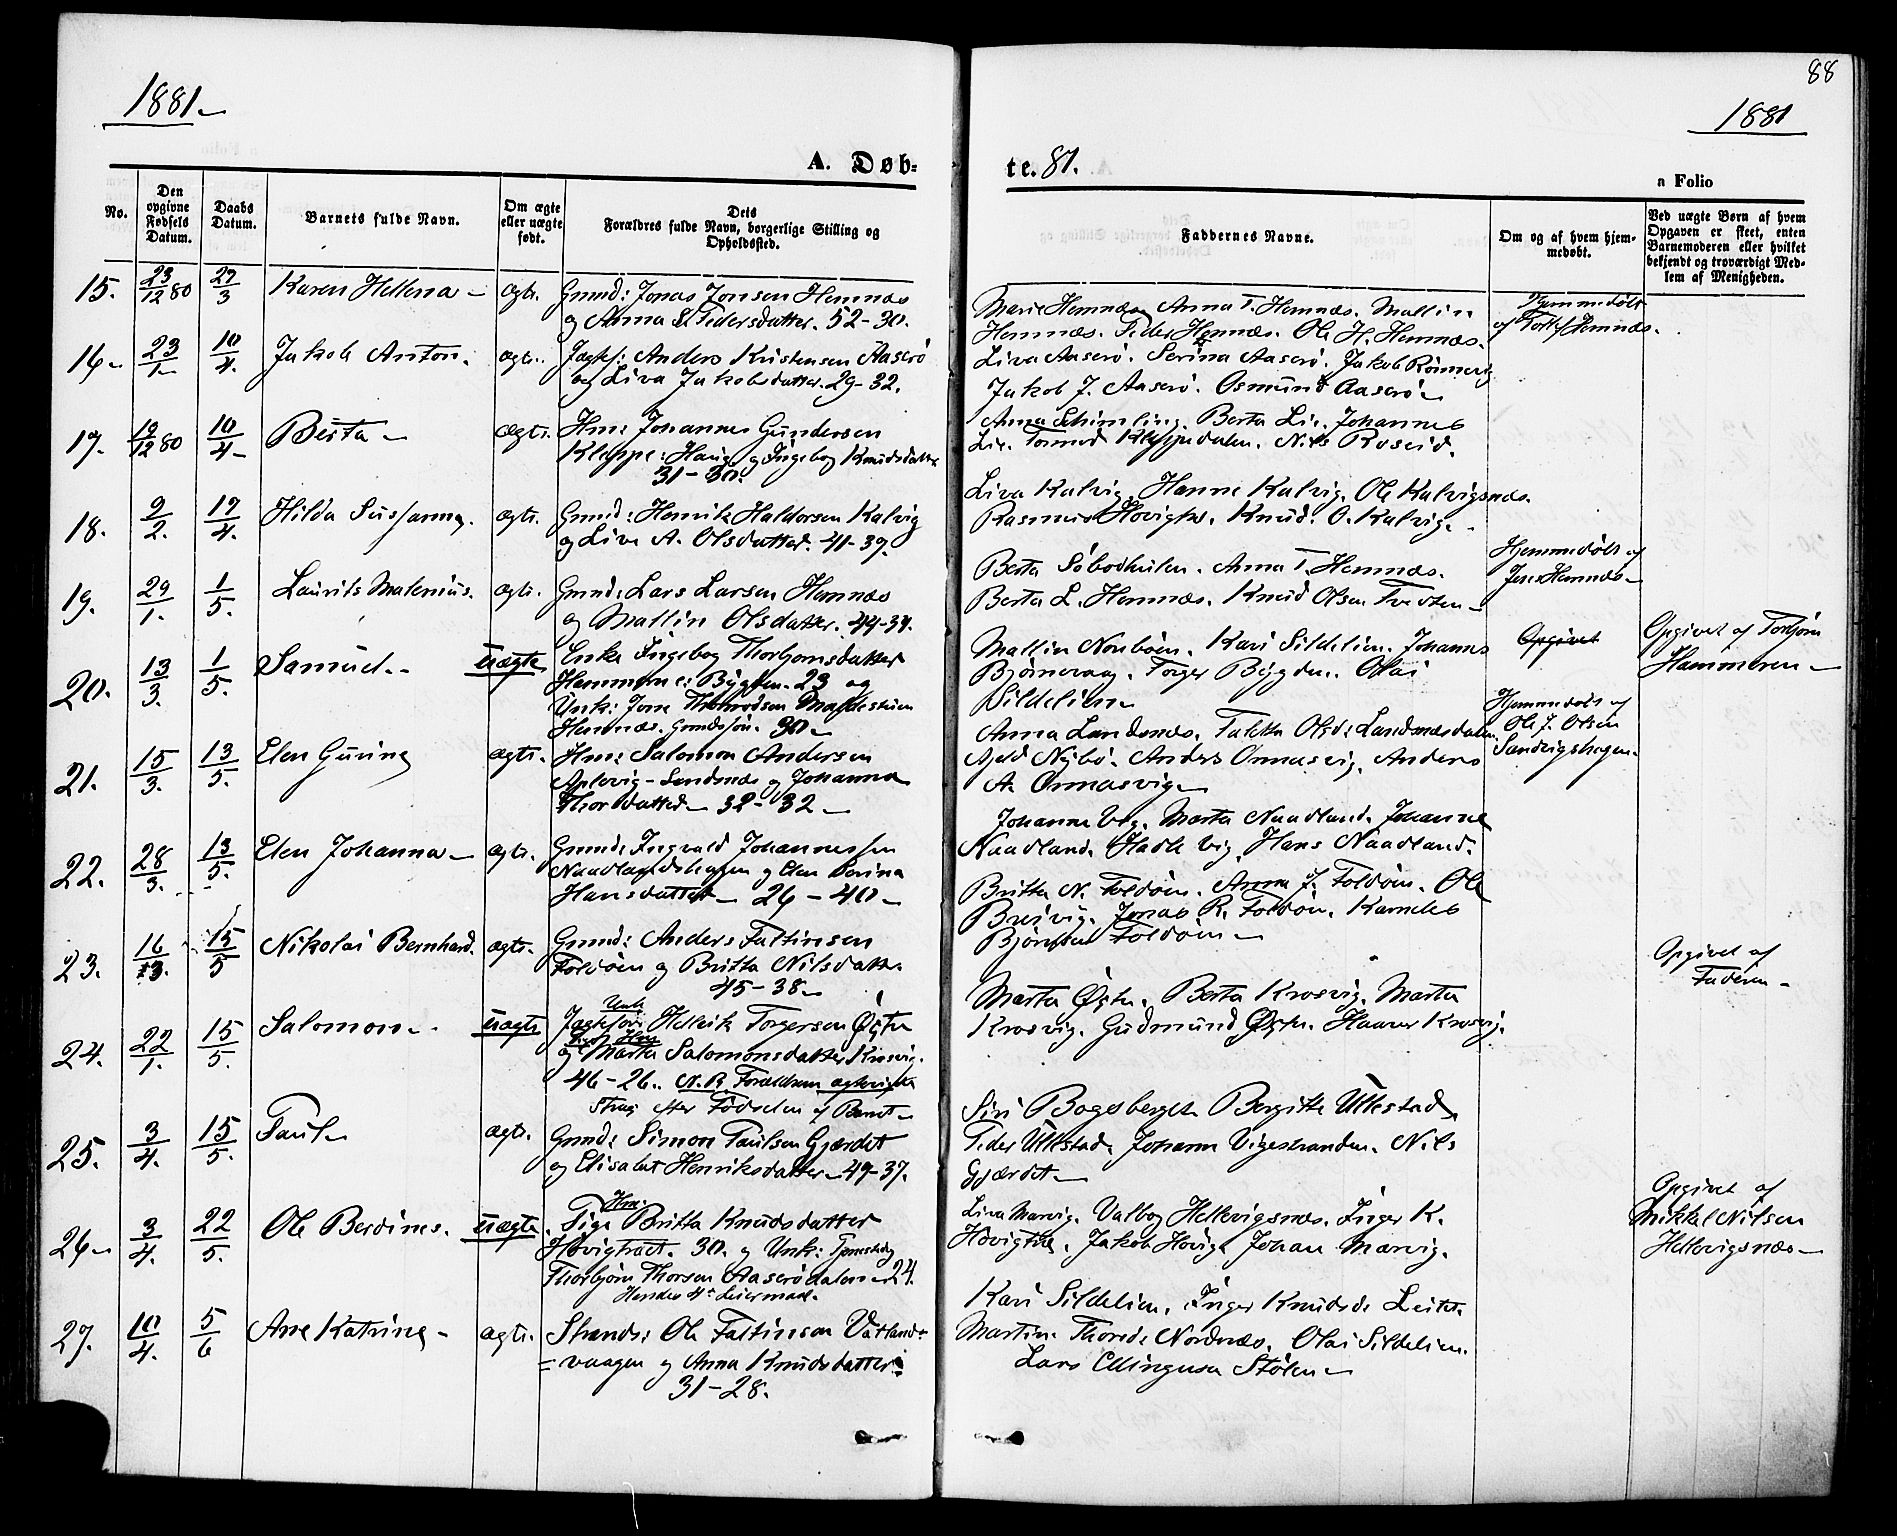 88
1881
1881
A. Døb-
te. 81.
n Folio
No.
Den opgivne Fødsels Datum.
Daabs Datum.
Barnets fulde Navn.
Om ægte eller uægte født.
Dets Forældres fulde Navn, borgerlige Stilling og Opholdssted.
Faddernes Navne.
Om og af hvem hjemmedøbt.
Ved uægte Børn af hvem Opgaven er skeet, enten Barnemoderen eller hvilket bekjendt og troværdigt Medlem af Menigheden.
15. 23/12 80 27/3 Karen Hellena ægte. Gmnd: Jonas Jonsen Hemnæs
og Anna Pedersdatter. 52-30.
Marie Hemnæs. Anna T. Hemnæs. Mallin
Hemnæs. Peder Hemnæs. Ole H. Hemnæs.
Hjemmedøbt
af Hemnæs.
16 23/1 10/4 Jakob Anton. ægte. Anders Kristensen Aaserö
og Liva Jakobsdatter. 29-32.
Liva Aaserö. Serina Aaserö. Jakob Rönnevig
Jakob J. Aaserö. Osmund Aaserö
17. 12/12 80 10/4 Berta ægte. Hm: Johannes Gundersen
Kleppe: Haug og Ingebog Knudsdatter
31-30.
Anna Schimling. Berta Lie. Johannes
Lie. Tormod Kleppedalen. Nils Roseid.
18. 9/2 17/4 Hilda Susanna. ægte. Gmnd: Henrik Haldorsen Kalvig
og Liva A. Olsdatter. 41-37.
Liva Kalvig. Hanne Kalvig. Ole Kalvigsnæs.
Rasmus Hovigtr. Knud. O. Kalvig.
19. 29/1 1/5 Laurits Malenius. ægte. Gmnd: Lars Larsen Hemnæs
og Mallin Olsdatter. 44-34.
Berta Söbodhülen. Anna T. Hemnæs.
Berta L. Hemnæs. Knud Olsen Tveden
Hjemmedøbt af
Jens Hemnæs
20. 13/3 1/5 Samuel. uægte Enke Ingebog Thorbjornsdatter
Hemmene: Bygden. 23 og
Unk: Jone
Hemnæs. Gmndssøn. 30
Mallin Nonböen. Kari Sildelien. Johannes
Bjørnevaag. Torger Bygden. Olai
Sildelien
Opgivet
Opgivet af Torbjörn
Hammeren
21. 15/3 13/5 Elen Gurine ægte. Hm: Salomon Andersen
Aplevig-Landsnæs og Johanna
Thorsdatter 32-32
Anna Landsnæs. Takla Olsd: Landsnæsdalen
Njeld Nybö. Anders Ormasvig. Anders
A. Ormasvig
Hjemmedøbt af
Ole J. Olsen
Sandvigshagen.
22. 28/3 13/5 Elen Johanna ægte. Gmnd: Ingvald Johannessen
Naadlandshagen og Elen Serina
Hansdatter 26-40
Johanna Vig. Marta Naadland. Johanne
Naadland. Hadle Vig. Hans Naadland.
23. 16/3. 15/5 Nikolai Bernhard. ægte. Gmnd: Anders Faltinsen
Foldöen og Britta Nilsdatter
45-38
Britta N. Foldöen. Anna J. Foldöen. Ole
Breivig. Jonas R. Foldöen. Kornelis
Bjørnsen Foldöen
24. 22/1 15/5 Salomon uægte Unk
Helrik Torgersen Østre
og Marta Salomonsdatter Krosvig.
46-26. N.B. Forældrene ægteviede
strax efter Födselen af Barnet
Marta Østre. Berta Krosvig. Marta
Krosvig. Gudmund Østre. Haavar Krosvig.
Opgivet af
Faderen
25. 3/4 15/5 Paul ægte. Gmnd: Simon Paulsen Gjærdet
og Elisabet Henriksdatter 49-37.
Siri Bogsberget. Bergitte Ullestad
Peder Ullestad. Johann Vigestranden. Nils
Gjærdet
26 3/4 22/5 Ole Berdines. uægte. Hm:
Pige Britta Knudsdatter
Hovigtræet. 30. og Unk:
Thorbjörn Thorsen Aaserödalen 24.
Hendes 4de Leiermaal.
Liva Marvig. Valbog Helkvigsnæs. Inger K.
Hovigtræ. Jakob Hovig. Johan Marvig.
Opgivet af
Mikkel Nilsen
Helkvigsnæs
27. 10/4 5/6 Ane Katrine ægte. Strands: Ole Faltinsen Vatland-
=vaagen og Anna Knudsdatter
31-28.
Kari Sildelien. Inger Knudsd: Leite.
Martin Thorsd: Nordnæs. Olai Sildelien.
Lars Ellingsen Stølen